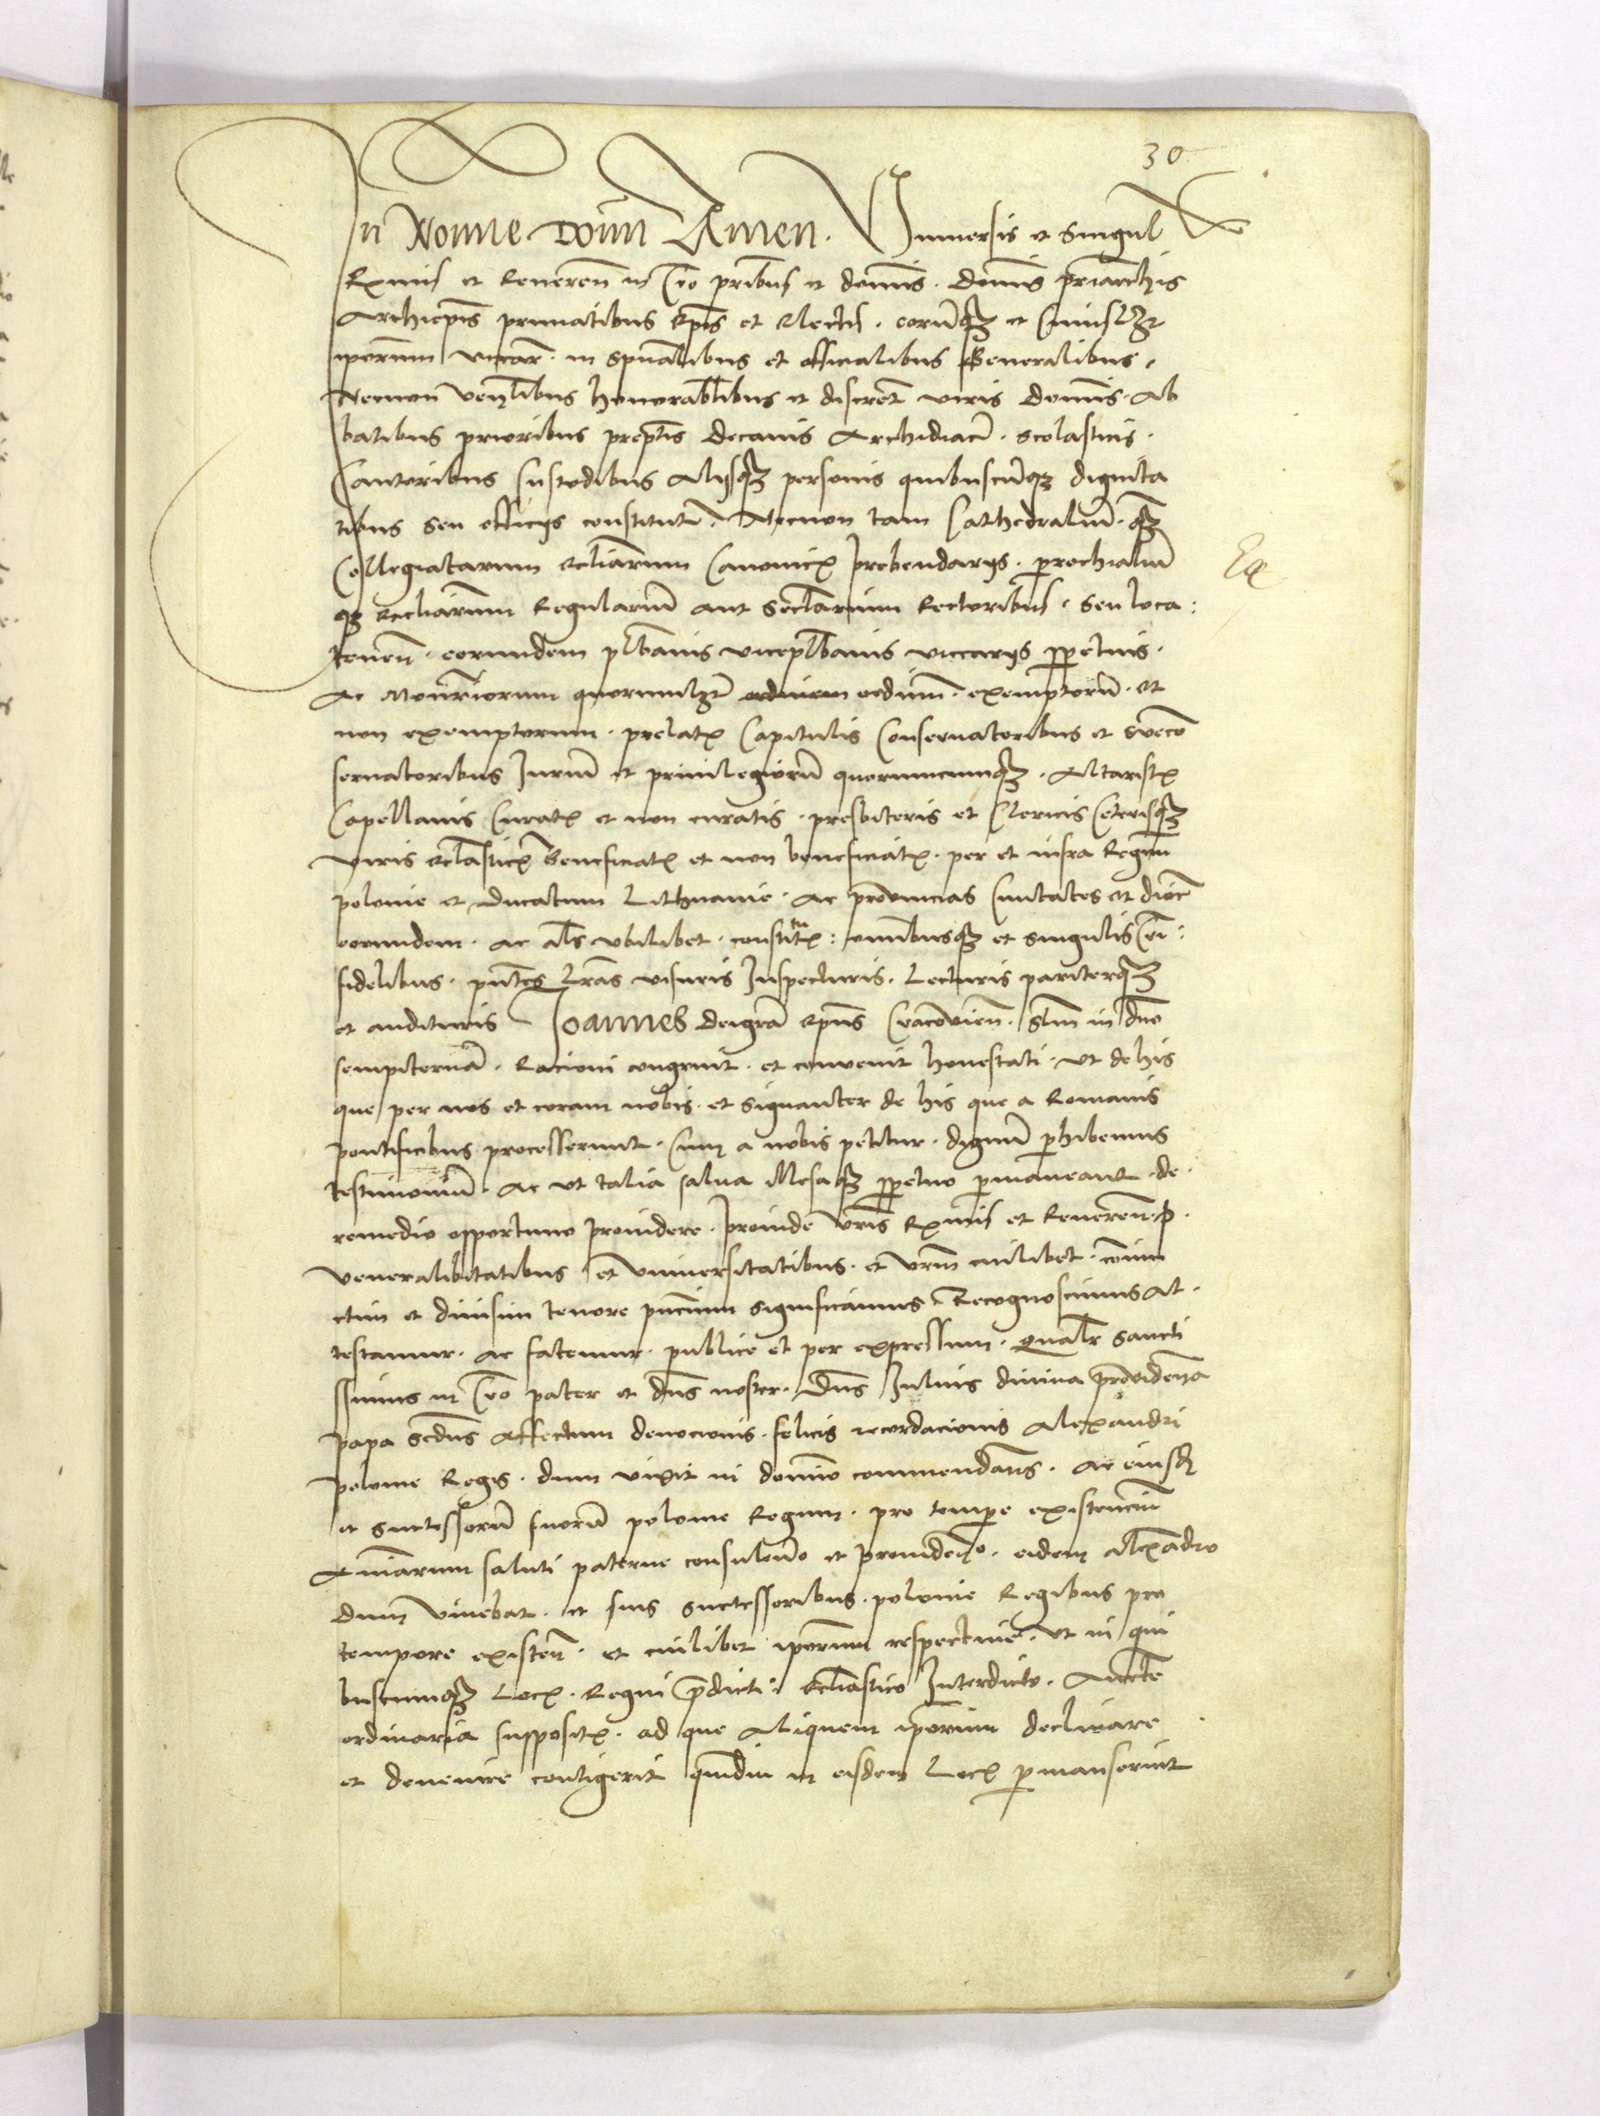 30
In Nomine Domini Amen. Universis et singul
Rmis et Reveren in Cro pribus et domnis. Domnis priarchis
Archiepis primatibus Epis et Electis. eorumqz et cuiuslzt
iporum vicar. in spualibus et officialibus Generalibus.
Necnon venlibus honorablibus et discret viris Domnis. Ab
batibus prioribus preptis Decanis Archidiacn. Scolasticis.
Cantoribus Custodibus Alijsqz personis quibuscunqz dignita
tibus seu officijs constitut. Necnon tam Cathedralium. qz
Collegiatarum eccliarum Canonicis prebendarijs. parrochialium
qz eccliarum Regularium aut seclarium Rectoribus. seu loca:
tenen. eorundem plbanis viceplbanis viccarijs ppetuis.
Ac monriorum quorumlzt ordinum. exemptoru. et
non exemptorum. prelatis Capitulis Conservatoribus et Subcon
servatoribus Iurium et privilegioru quorumcumqz. Altaristis
Capellanis Curatis et non curatis. presbiteris et Clericis Ceterisqz
viris eclasticis Beneficiatis et non beneficiatis. per et infra Regnum
polonie et Ducatum Lithuanie. Ac provincias Civitates et dioc
eorundem. ac als ubilibet. constitutis: omnibusqz et singulis Cri:
fidelibus. pntes lras visuris Inspecturis. Lecturis pariterqz
et audituris Joannes Dei gra Epus Cracovien. Slm in dno
sempiternam. Racioni congruit. et convenit honestati. ut de his
que per nos et coram nobis. et signanter de his que a Romanis
pontificibus processerunt. Cum a nobis petitur. dignum phibemus
testimonium. Ac ut talia salva illesaqz ppetuo pmaneant. de.
remedio opportuno providere. proinde vris Rmis et Reveren. p.
Venerabilitatibus et Universitatibus. et vrm cuilibet. coniun
ctim et divisim tenore pncium significamus Recognoscimus At.
testamur. ac fatemur. publice et per expressum. qualr sancti
ssimus in Cro pater et dns noster. Dns Iulius divina providencia
papa scdus Affectum devocionis. felicis recordacionis Alexandri
polonie Regis. dum vixit in domino commendans. Ac eiusd
et successoru suoru polonie Regum. pro tempe existencium
Animarum saluti paterne consulendo et providendo. eidem Alexandro
Dum vivebat. et suis successoribus. polonie Regibus pro
tempore existen. et cuilibet iporum respective. ut in qui
buscumqz Locis. Regni predicti. Ecliastico Interdicto. Aucte
ordinaria suppositis. ad que Aliquem iporum declinare
et devenire contigerit quamdiu in eisdem Locis pmanserint